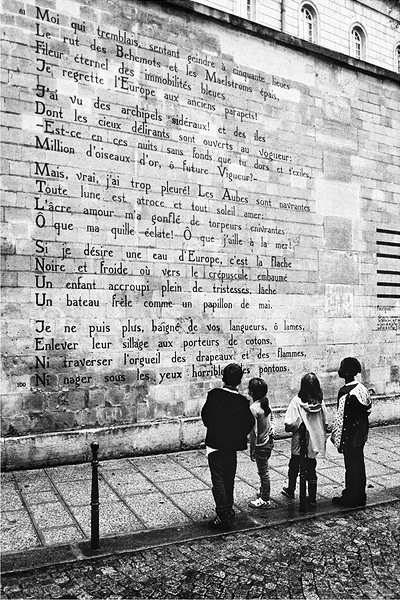 81 Moi qui tremblais, sentant geindre à cinquante lieues
Le rut des Béhémots et les Maelstroms épais,
Fileur éternel des immobilités bleues,
Je regrette l'Europe aux anciens parapets!
J'ai vu des archipels sidéraux! et des îles
Dont les cieux délirants sont ouverts au vogueur:
-Est-ce en ces nuits sans fonds que tu dors et t'exiles,
Million d'oiseaux d'or, ô future Vigueur?-
Mais, vrai, j'ai trop pleuré! Les Aubes sont navrantes
Toute lune est atroce et tout soleil amer:
L'âcre amour m'a gonflé de torpeurs enivrantes
Ô que ma quille éclate! Ô que j'aille à la mer!
Si je désire une eau d'Europe, c'est la flache
Noire et froide où vers le crépuscule embaumé
Un enfant accroupi plein de tristesses, lâche
Un bateau frêle comme un papillon de mai.
Je ne puis plus, baigné de vos langueurs, ô lames,
Enlever leur sillage aux porteurs de cotons,
Ni traverser l'orgueil des drapeaux et des flammes,
100 Ni nager sous les yeux horribles pontons.